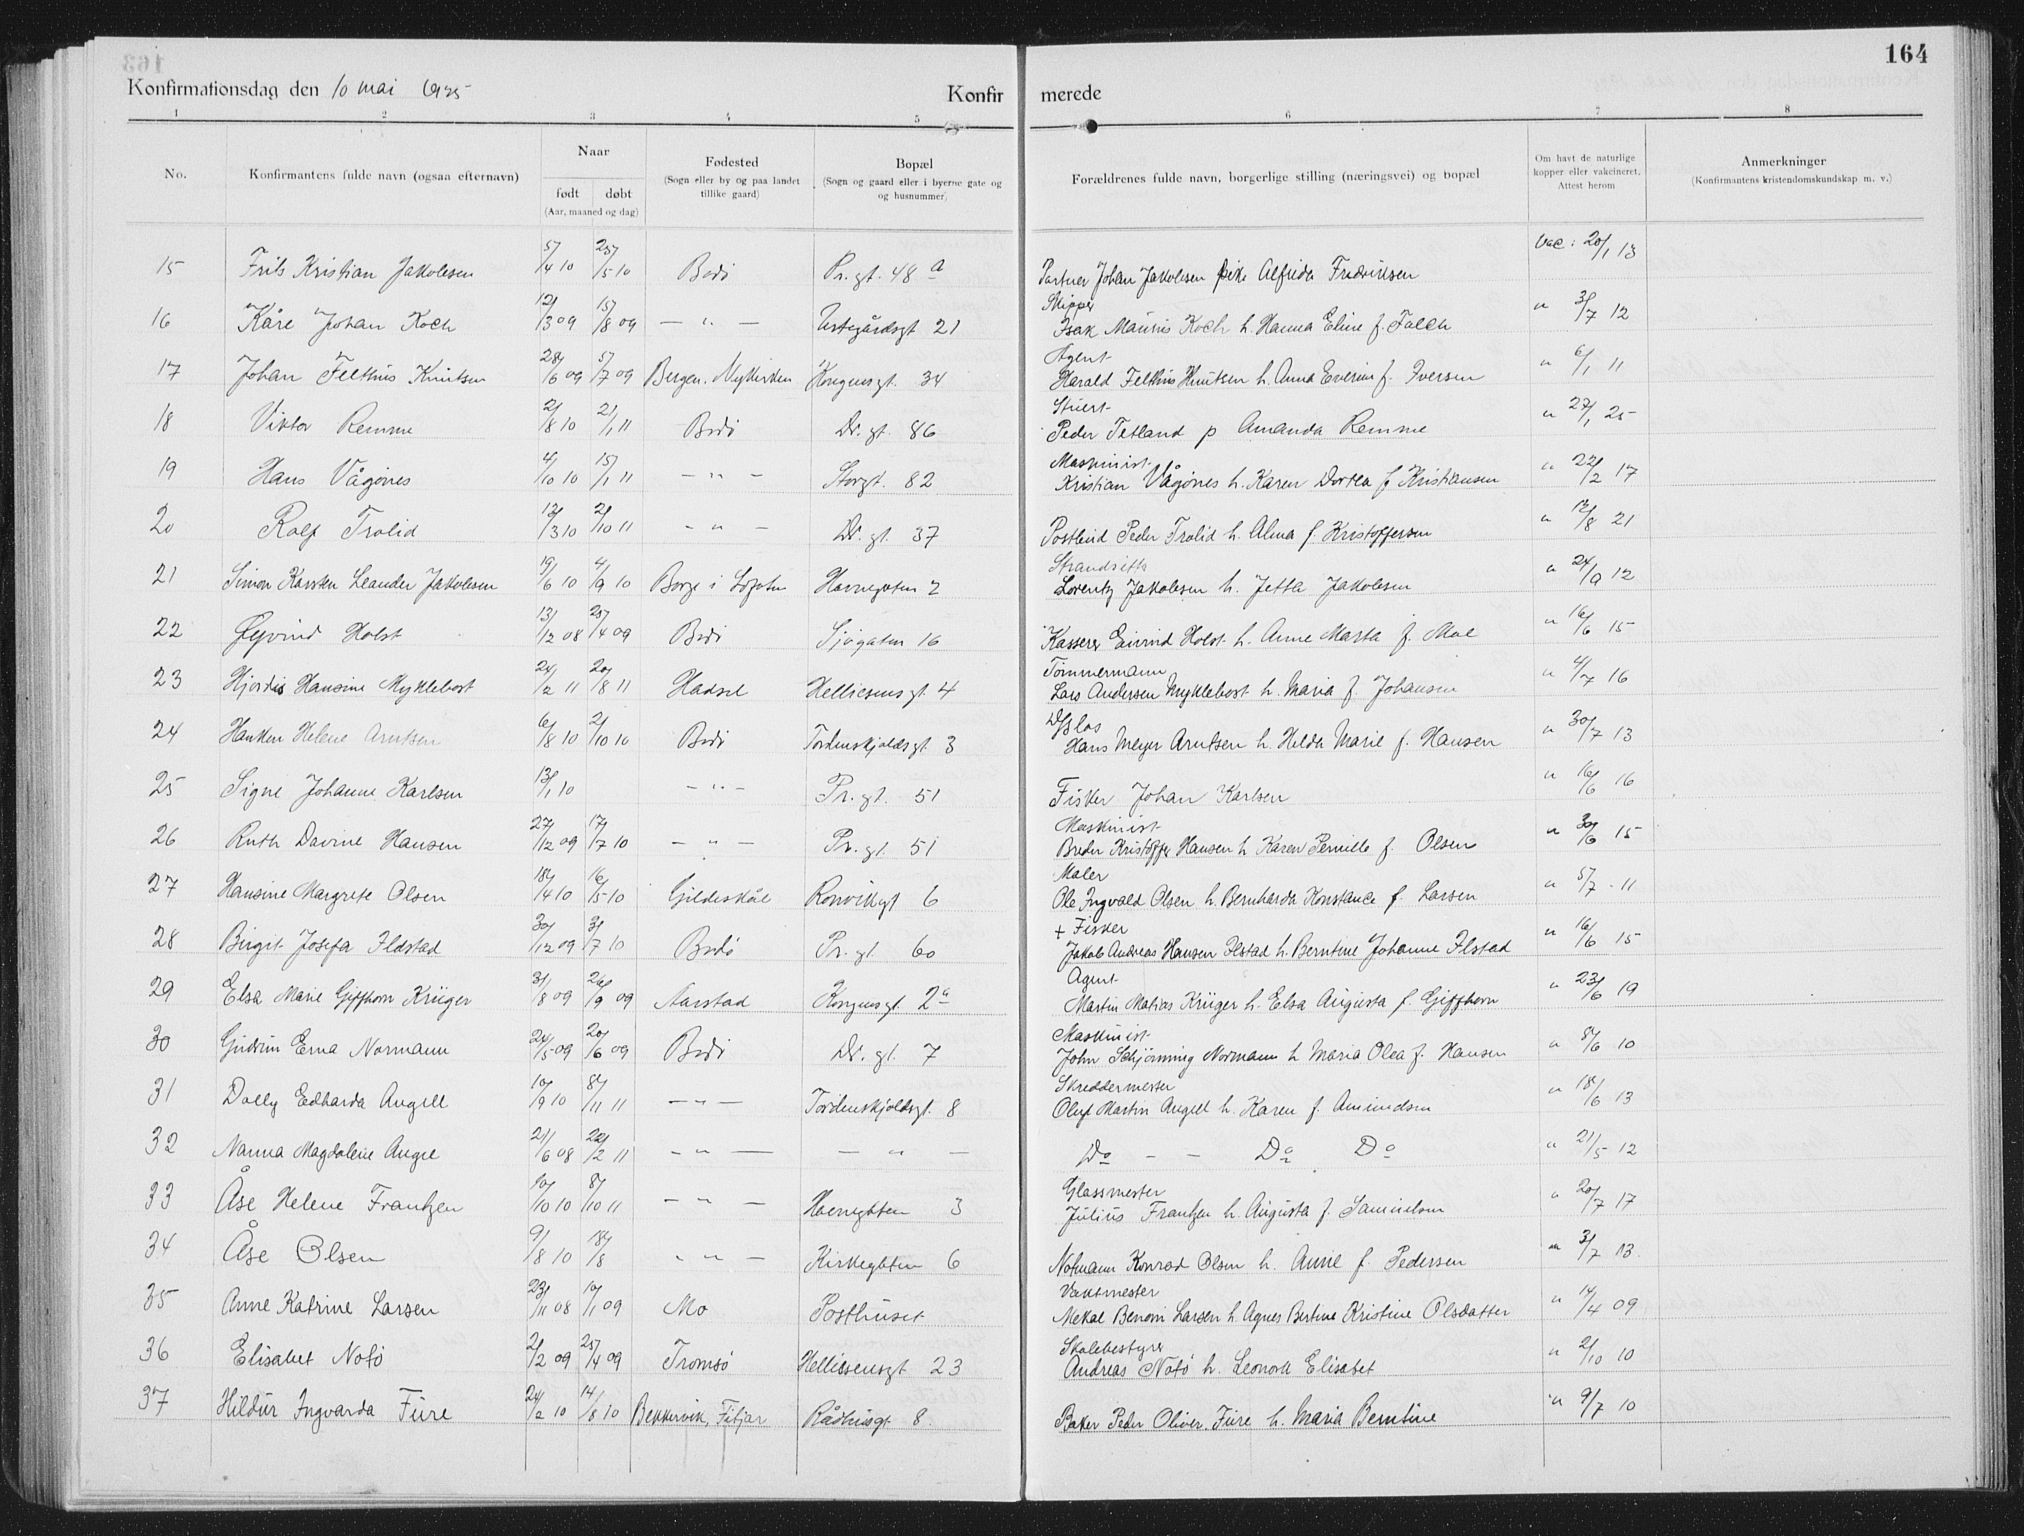 164
Konfirmationsdag den 10 mai 1925
Konfirmerede
1 2 3 4 5 6 7 8
No.
Konfirmantens fulde navn (ogsaa efternavn)
Naar
født døbt
(Aar, maaned og dag)
Fødested
(Sogn eller by og paa landet
tillike gaard)
Bopæl
(Sogn og gaard eller i byerne gate og
og husnummer)
Forældrenes fulde navn, borgerlige stilling (næringsvei) og bopæl
Om havt de naturlige
kopper eller vakcineret.
Attest herom
Anmerkninger
(Konfirmantens kristendomskundskap m. v.)
15 Frits Kristian Jakobsen 5/4 10 25/5 10 Bodø Pr. gt. 48 a Johan Jakobsen pike Alfrida Fredriksen Vac: 20/1 13
Skipper
16 Kåre Johan Koch 12/3 09 15/8 09 — " — 21 Isak Maurius Koch h. Hanna Eline f. Falch " 3/7 12
Agent
17 Johan Felthus Knutsen 28/6 09 5/7 09 Bergen. Nykirken Kongensgt. 34 Harald Felthus Knutsen h. Anna Everine f. Iversen " 6/1 11
Stuert
18 Viktor Remme 2/8 10 2/1 11 Bodø Dr. gt. 86 Peder Tetland p Amanda Remme " 27/1 25
Maskinist
19 Hans Vågønes 4/10 10 15/1 11 — " — Storgt. 82 Kristian Vågønes h. Karen Dortea f Kristiansen " 22/2 17
20 Rolf Trolid 12/3 10 2/10 11 — " — Dr. gt. 37 Postbud Peder Trolid h. Alma f. Kristoffersen " 12/8 21
Strandsitte
21 Simon Karsten Leander Jakobsen 19/6 10 4/9 10 Borge i Lofoten Havnegaten 2 Lorentz Jakobsen h. Jetta Jakobsen " 24/9 12
22 Øyvind Holst 13/12 08 25/4 09 Bodø Sjøgaten 16 Kasserer Eivind Holst h. Anne Marta f. Moe " 16/6 15
Tømmermann
23 Hjordis Hansine Myklebost 24/2 11 20/8 11 Hadsel Hellicsensgt 4 Lars Andersen Myklebost h. Maria f. Johansen " 4/7 16
24 Hanken Helene Arntsen 6/8 10 2/10 10 Bodø Tordenskjoldsgt 3 Hans Meyer Arntsen h. Hilda Marie f. Hansen " 30/7 13
25 Signe Johanne Karlsen 13/1 10 — " — Pr. gt. 51 Fisker Johan Karlsen " 16/6 16
Maskinist
26 Ruth Davine Hansen 27/12 09 17/7 10 — " — Pr. gt. 51 Breder Kristoffer Hansen h Karen Pernille f. Olsen " 30/6 15
Maler
27 Hansine Margrete Olsen 18/4 10 16/5 10 Gildeskål Rønvikgt 6 Ole Ingvald Olsen h. Bernharda Konstance f. Larsen " 5/7 11
+ Fisker
28 Birgit Josefa Ilstad 30/12 09 3/7 10 Bodø Pr. gt. 60 Jakob Andreas Hansen Ilstad h. Berntine Johanne Ilstad " 16/6 15
Agent
29 Elsa Marie Giffhorn Krüger 31/8 09 26/9 09 Aarstad Kongensgt. 2a Martin Matias Krüger h. Elsa Augusta f. Giffhorn " 23/6 19
Maskinist
30 Gudrun Erna Normann 24/5 09 20/6 09 Bodø Dr. gt. 7 John Schjønning Normann h Maria Olea f. Hansen " 8/6 10
Skreddermester
31 Dolly Edharda Angell 10/9 10 8/11 11 — " — Tordenskjoldsgt. 8 Oluf Martin Angell h. Karen f. Amundsen " 18/6 13
32 Nanna Magdalene Angel 21/6 08 22/2 11 — " — — " — Do — — Do Do " 21/5 12
Glassmester
33 Åse Helene Frantzen 10/10 10 8/10 11 — " — Havnegaten 3 Julius Frantzen h. Augusta f. Samuelsen " 20/7 17
34 Åse Olsen 9/8 10 18/8 " — " — Kirkegaten 6 Notmann Konrad Olsen h. Anne f. Pedersen " 3/7 13.
Vaktmester
35 Anne Katrine Larsen 23/11 08 10/1 09 Mo Posthuset Mekal Benoni Larsen h. Agnes Bertine Kristine Olsdatter " 14/4 09
Skolebestyrer
36 Elisabet Notø 2/2 09 25/4 09 Tromsø Hellicsensgt 23 Andreas Notø h. Leonora Elisabet " 2/10 10
37 Hildur Ingvarda Fure 24/2 10 14/8 10 Bekkervik, Fitjar Rådhusgt 8. Baker Peder Oliver Fure h. Maria Berntine " 9/7 10